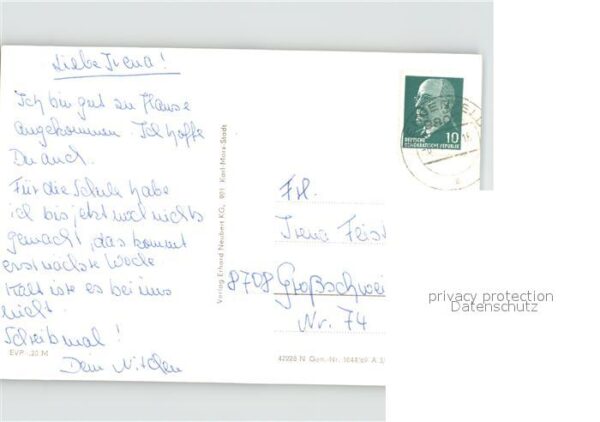 Liebe Irena!
Ich bin gut zu Hause
angekommen. Ich hoffe
Du auch.
Für die Schule habe
ich bis jetzt noch nichts
gemacht, das kommt
erst nächste Woche
Kalt ist es bei uns
nicht.
Schreib mal!
Dein
EVP -,20 M
Verlag Erhard Neubert KG, 901 Karl-Marx-Stadt
DEUTSCHE
DEMOKRATISCHE REPUBLIK
10
Frl.
Irena Feist
8708 Großschwei
Nr. 74
privacy protection
Datenschutz